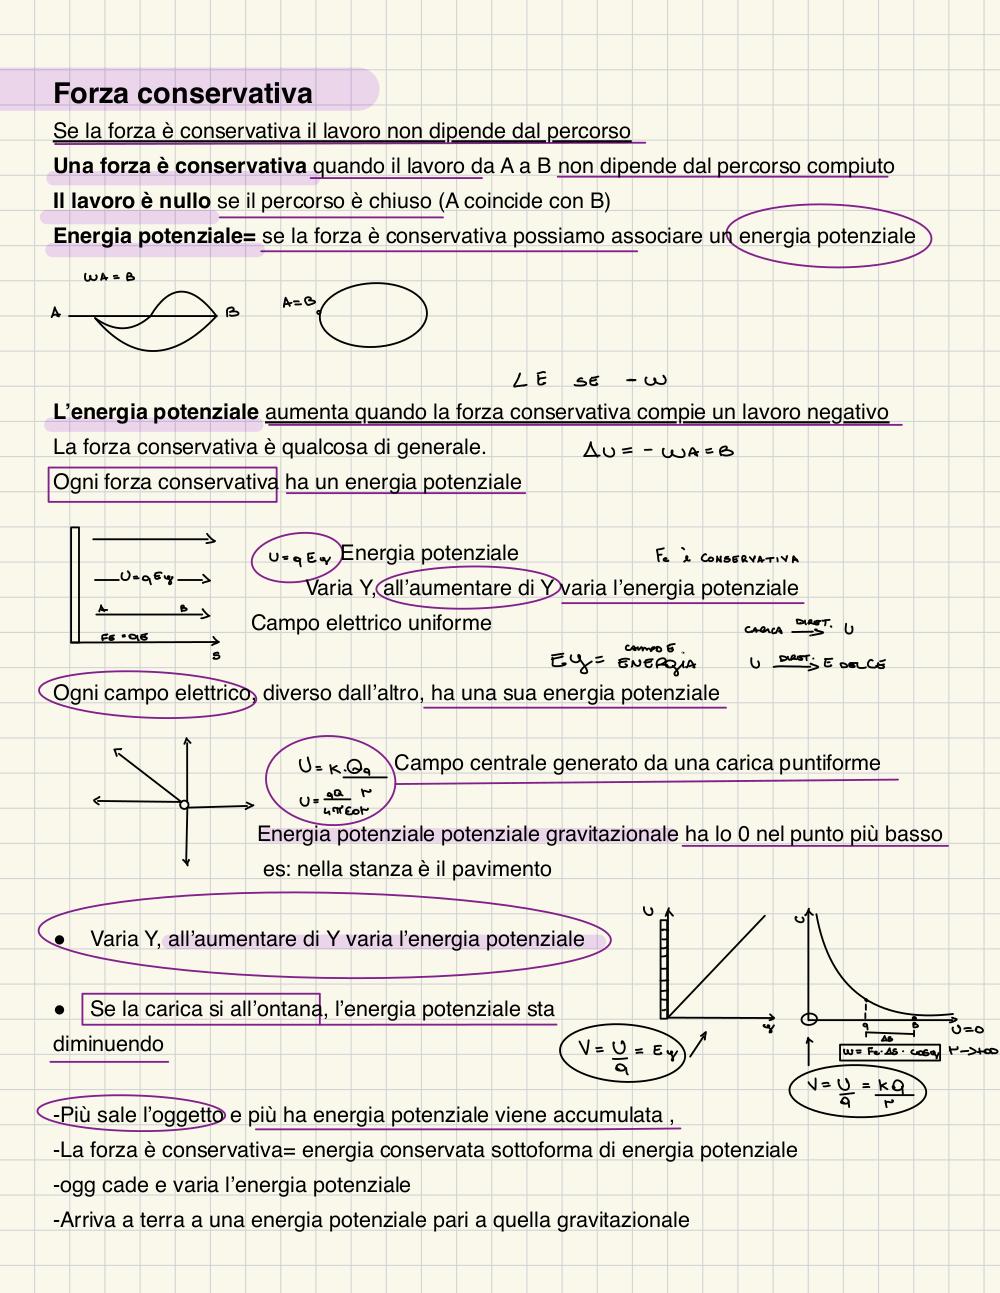 Forza conservativa
Se la forza è conservativa il lavoro non dipende dal percorso
Una forza è conservativa quando il lavoro da A a B non dipende dal percorso compiuto
Il lavoro è nullo se il percorso è chiuso (A coincide con B)
Energia potenziale= se la forza è conservativa possiamo associare un energia potenziale
WA=B
A B
A=B
E SE -W
L'energia potenziale aumenta quando la forza conservativa compie un lavoro negativo
La forza conservativa è qualcosa di generale.
ΔU = - WA=B
Ogni forza conservativa ha un energia potenziale
U=qEy Energia potenziale
Fe è CONSERVATIVA
U=qEy
Varia Y, all'aumentare di Y varia l'energia potenziale
A B
Campo elettrico uniforme
CARICA DIRET. U
S
Ey= CAMPO E ENERGIA
U DIRET. E DEL CE
Ogni campo elettrico, diverso dall'altro, ha una sua energia potenziale
U=K.Qq/r
Campo centrale generato da una carica puntiforme
U=qQ/4πεor
Energia potenziale potenziale gravitazionale ha lo 0 nel punto più basso
es: nella stanza è il pavimento
U
● Varia Y, all'aumentare di Y varia l'energia potenziale
● Se la carica si all'ontana, l'energia potenziale sta
diminuendo
y
U=0
ΔS
W=Fe·ΔS·cosα r->+∞
V=U/q=Ey
V=U/q=KQ/r
-Più sale l'oggetto e più ha energia potenziale viene accumulata ,
-La forza è conservativa= energia conservata sottoforma di energia potenziale
-ogg cade e varia l'energia potenziale
-Arriva a terra a una energia potenziale pari a quella gravitazionale